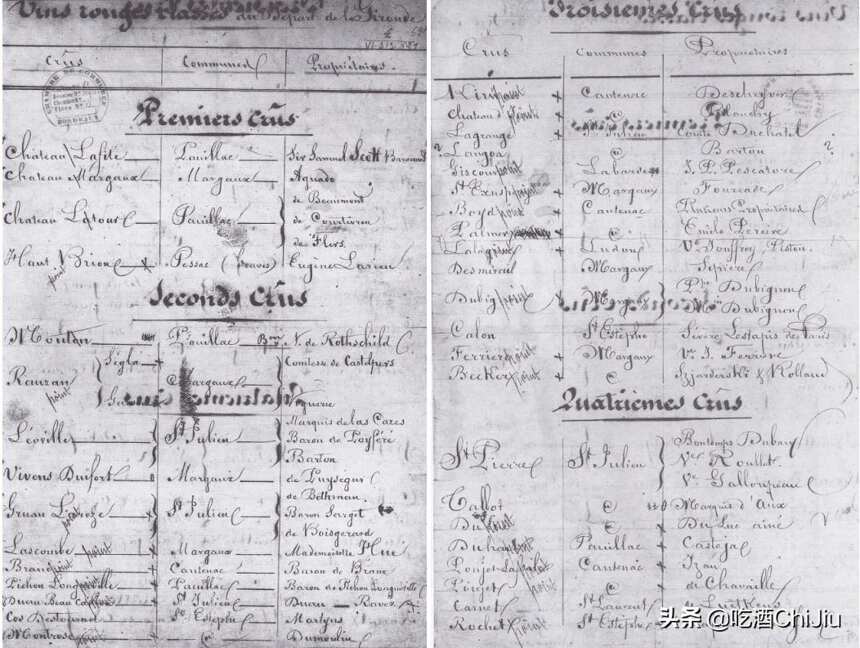 Vins rouges classés du Départ. de la Gironde
Crûs Communes Propriétaires
CHAMBRE DE COMMERCE BORDEAUX
Premiers Crûs
Chateau Lafite Pauillac Sir Samuel Scott
Chateau Margaux Margaux Aguado
de Beaumont
Chateau Latour Pauillac de Courtivron
de Flers
Haut Brion Pessac (Graves) Eugène Larieu
Seconds Crûs
Mouton Pauillac Bon N. de Rothschild
Ségla Comtesse de Castelpers
Rauzan Margaux
Marquis de las Cases
Léoville St Julien Baron de Poyféré
Barton
Vivens Durfort Margaux de Puységur
de Bethman
Gruau Laroze St Julien Baron Sarget
de Boisgerard
Lascombe Margaux Mademoiselle Hue
Brane Cantenac Baron de Brane
Pichon Longueville Pauillac Baron de Pichon Longueville
Ducru Beau Caillou St Julien Ducru Ravez
Cos Destournel St Estèphe Martyns
Montrose @ Dumoulin
Troisièmes Crûs
Crûs Communes Propriétaires
Kirwan Cantenac Deschryver
Chateau d'Issan @ Blanchy
Lagrange St Julien Comte Duchatel
Langoa @ Barton
Giscours Labarde J. P. Pescatore
St Exupery Margaux Fourcade
Boyd Cantenac Plusieurs Propriétaires
Palmer @ Emile Péreire
Lalagune Ludon Ve Jouffroy Piston
Desmirail Margaux Sipière
Dubignon Margaux Dubignon
Dubignon
Calon St Estèphe
Ferrière Margaux Ve J. Ferrière
Becker @ Szjarderski & Rolland
Quatrièmes Crûs
Bontemps Dubarry
St Pierre St Julien Ve Roullet
Ve Galloupeau
Talbot @ Marquis d'Aux
Du Luc @ Du Luc ainé
Duhart Pauillac Castéja
Cantenac Izan
@ de Chavaille
Carnet St Laurent de Luetkens
Rochet St Estèphe
头条 @吃酒ChiJiu